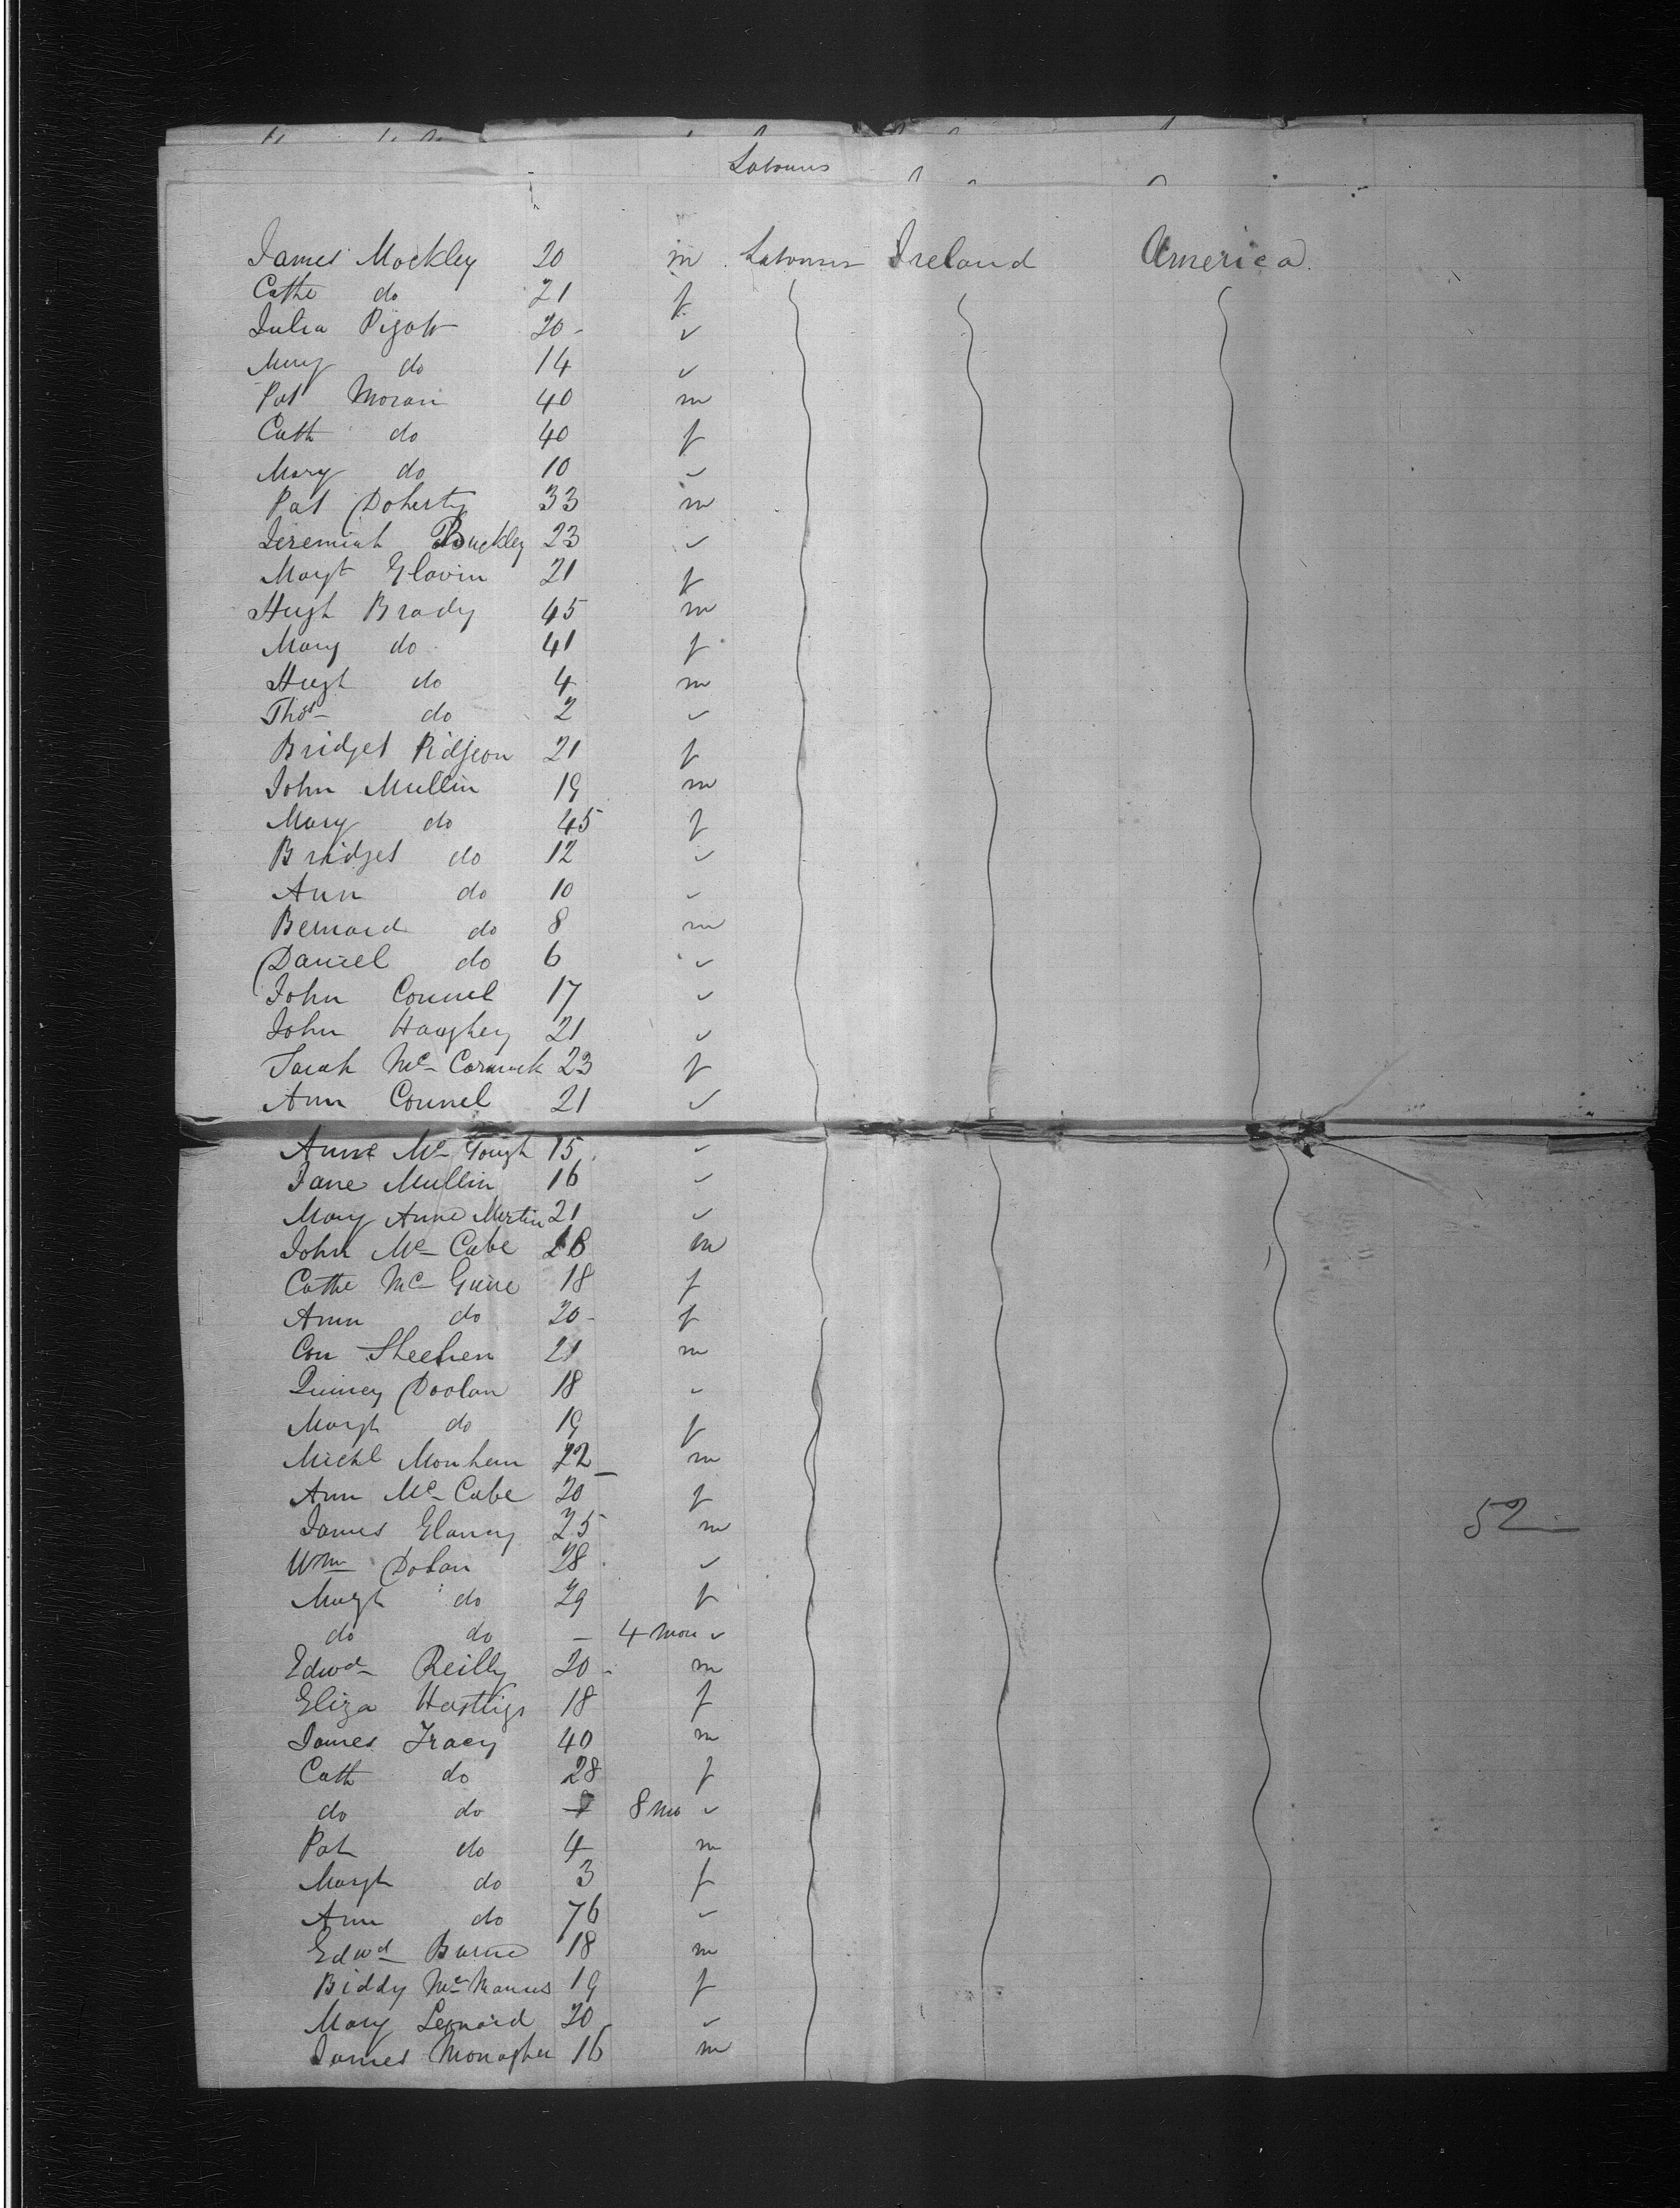 Labourers
James Mockley 20 m Labourer Ireland America
Cathe do 21 f
Julia Pigott 20 ✓
Mary do 14 ✓
Pat Moran 40 m
Cath do 40 f
Mary do 10 ✓
Pat Doherty 33 m
Jeremiah Buckley 23 ✓
Margt Glavin 21 f
Hugh Brady 45 m
Mary do 41 f
Hugh do 4 m
Thos do 2 ✓
Bridget Pidgeon 21 f
John Mullin 19 m
Mary do 45 f
Bridget do 12 ✓
Ann do 10 ✓
Bernard do 8 m
Daniel do 6 ✓
John Connel 17 ✓
John Haughey 21 ✓
Sarah Mc Cormick 23 f
Ann Connel 21 ✓
Anne Mc Gough 15 ✓
Jane Mullin 16 ✓
Mary Anne Martin 21 ✓
John Mc Cabe m
Cathe Mc Guire 18 f
Ann do 20 f
Con Sheehen 21 m
Doolan 18 ✓
Margt do 19 f
Michl Monhem 22 m
Ann Mc Cabe 20 f
James 25 m
52
Wm Dolan 28 ✓
Margt do 29 f
do do — 4 mon ✓
Edwd Reilly 20 m
Eliza Hastigs 18 f
James Tracy 40 m
Cath do 28 f
do do 8 mo ✓
Pat do 4 m
Margt do 3 f
Ann do 76 ✓
Edwd Burne 18 m
Biddy Mc Manus 19 f
Mary Leonard 20 ✓
James Monagher 16 m